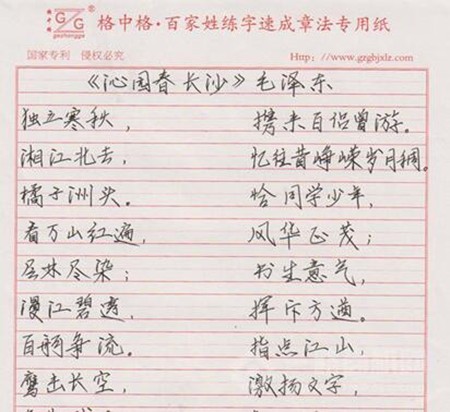 格中格 gezhongge ® 格中格·百家姓练字速成章法专用纸
国家专利 侵权必究 Http://www.gzgbjxlz.com
《沁园春 长沙》毛泽东
独立寒秋， 携来百侣曾游。
湘江北去， 忆往昔峥嵘岁月稠。
橘子洲头。 恰同学少年，
看万山红遍， 风华正茂；
层林尽染； 书生意气，
漫江碧透， 挥斥方遒。
百舸争流。 指点江山，
鹰击长空， 激扬文字，